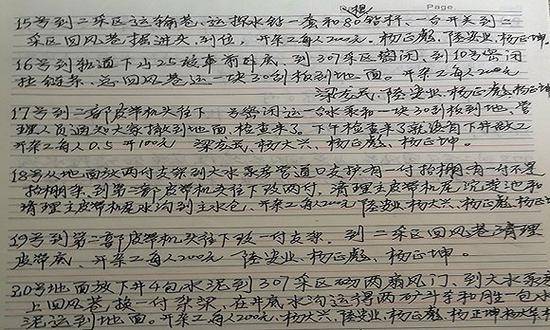 Page
棍
15号到二采区运输巷,运探水钻一套和80钻杆,一台开关到二
采区回风巷掘进头,到位,开杂工每人200元,杨正彪,陆安业,杨正坤。
16号到轨道下山25,到307采区密闭,到10号密闭
挂链条,总回风巷运一块30刮板到地面。开杂工每人200元
梁友武,陆安业,杨正彪,杨正坤
17号到二部皮带机头往下 号密闭运一台水泵和一块30刮板到地,管
理人员通知大家撤到地面,检查来了。下午检查来了就没有下井做工
开杂工每人0.5开100元 梁友武,杨大兴,杨正彪,杨正坤。
18号从地面放两付支架到大水泵房管道口支护有一付抬棚,有一付不是
抬棚来,到第二部皮带机头往下改两付,清理主皮带机尾沉淀池和
清理主皮带机尾水沟到主水仓,开杂工每人200元 陆安业,杨大兴,杨正彪,杨正坤
19号到第二部皮带机头往下改一付支架,到二采区回风巷清理
皮带底,开杂工每人200元 陆安业,杨正彪,杨正坤。
20号地面放下井4包水泥到307采区砌两扇风门,到大水泵房
上回风巷,换一付架梁,在井底水沟运得两矿斗车和胜一包水
泥运到地面。开杂工每人200元,杨大兴,陆安业,杨正彪,杨正坤